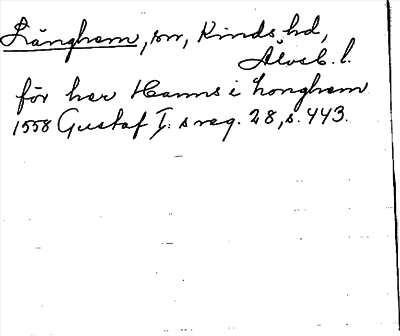 Länghem, sn, Kinds hd,
Älvsb. l.
för her Hanns i Longhem
1558 Gustaf I:s reg. 28, s. 443.